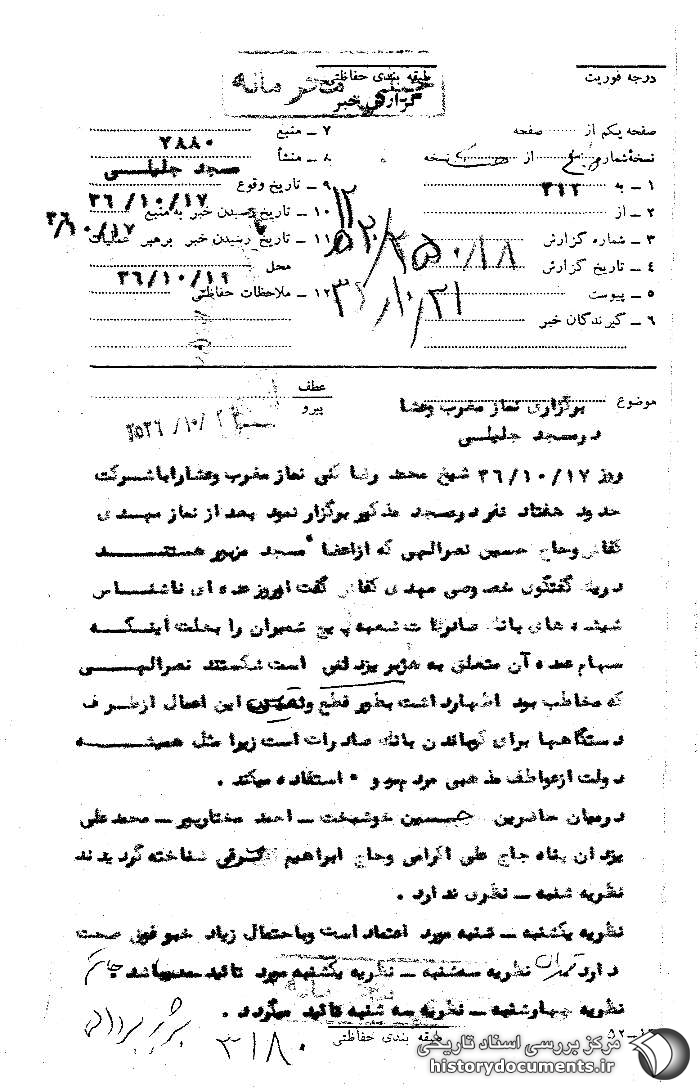 طبقه بندی حفاظتی
درجه فوریت
خیلی محرمانه
گزارش خبر
صفحه یکم از صفحه
نسخهٔ شماره از نسخه
۱ ـ به ۳۱۲
۲ ـ از
۳ ـ شماره گزارش
۴ ـ تاریخ گزارش
۵ ـ پیوست
۶ ـ گیرندگان خبر
۷ ـ منبع ۷۸۸۰
۸ ـ منشأ مسجد جلیلی
۹ ـ تاریخ وقوع ۳۶/۱۰/۱۷
۱۰ ـ تاریخ رسیدن خبر به منبع ۳۶/۱۰/۱۷
۱۱ ـ تاریخ رسیدن خبر برهبر عملیات
محل ۳۶/۱۰/۱۹
۱۲ ـ ملاحظات حفاظتی
۳۶/۱۰/۲۱
عطف
پیرو
موضوع برگزاری نماز مغرب وعشا
در مسجد جلیلی
روز ۳۶/۱۰/۱۷ شیخ محمد رضا کنی نماز مغرب وعشارا باشرکت
حدود هفتاد نفر در مسجد مذکور برگزار نمود بعد از نماز مهدی
کفاش وحاج حسین نصرالهی که از اعضا مسجد مزبور هستند
دریک گفتگوی خصوصی مهدی کفاش گفت امروز عده ای ناشناس
شیشه های بانک صادرات شعبه پیچ شمیران را بعلت اینکه
سهام عمده آن متعلق به هژبر یزدانی است شکستند نصرالهی
که مخاطب بود اظهارداشت بطور قطع و این اعمال ازطرف
دستگاهها برای کوباندن بانک صادرات است زیرا مثل همیشه
دولت ازعواطف مذهبی مردم سو ء استفاده میکند .
درمیان حاضرین حسین خوشبخت ـ احمد مختارپور ـ محمد علی
یزدان پناه حاج علی اکرامی وحاج ابراهیم شناخته گردیدند
نظریه شنبه ـ نظری ندارد .
نظریه یکشنبه ـ شنبه مورد اعتماد است وباحتمال زیاد خبر فوق صحت
دارد تهران نظریه سه شنبه ـ نظریه یکشنبه مورد تائید میباشد .
نظریه چهارشنبه ـ نظریه سه شنبه تائید میگردد .
طبقه بندی حفاظتی
۳۱۸۰
مرکز بررسی اسناد تاریخی
historydocuments.ir